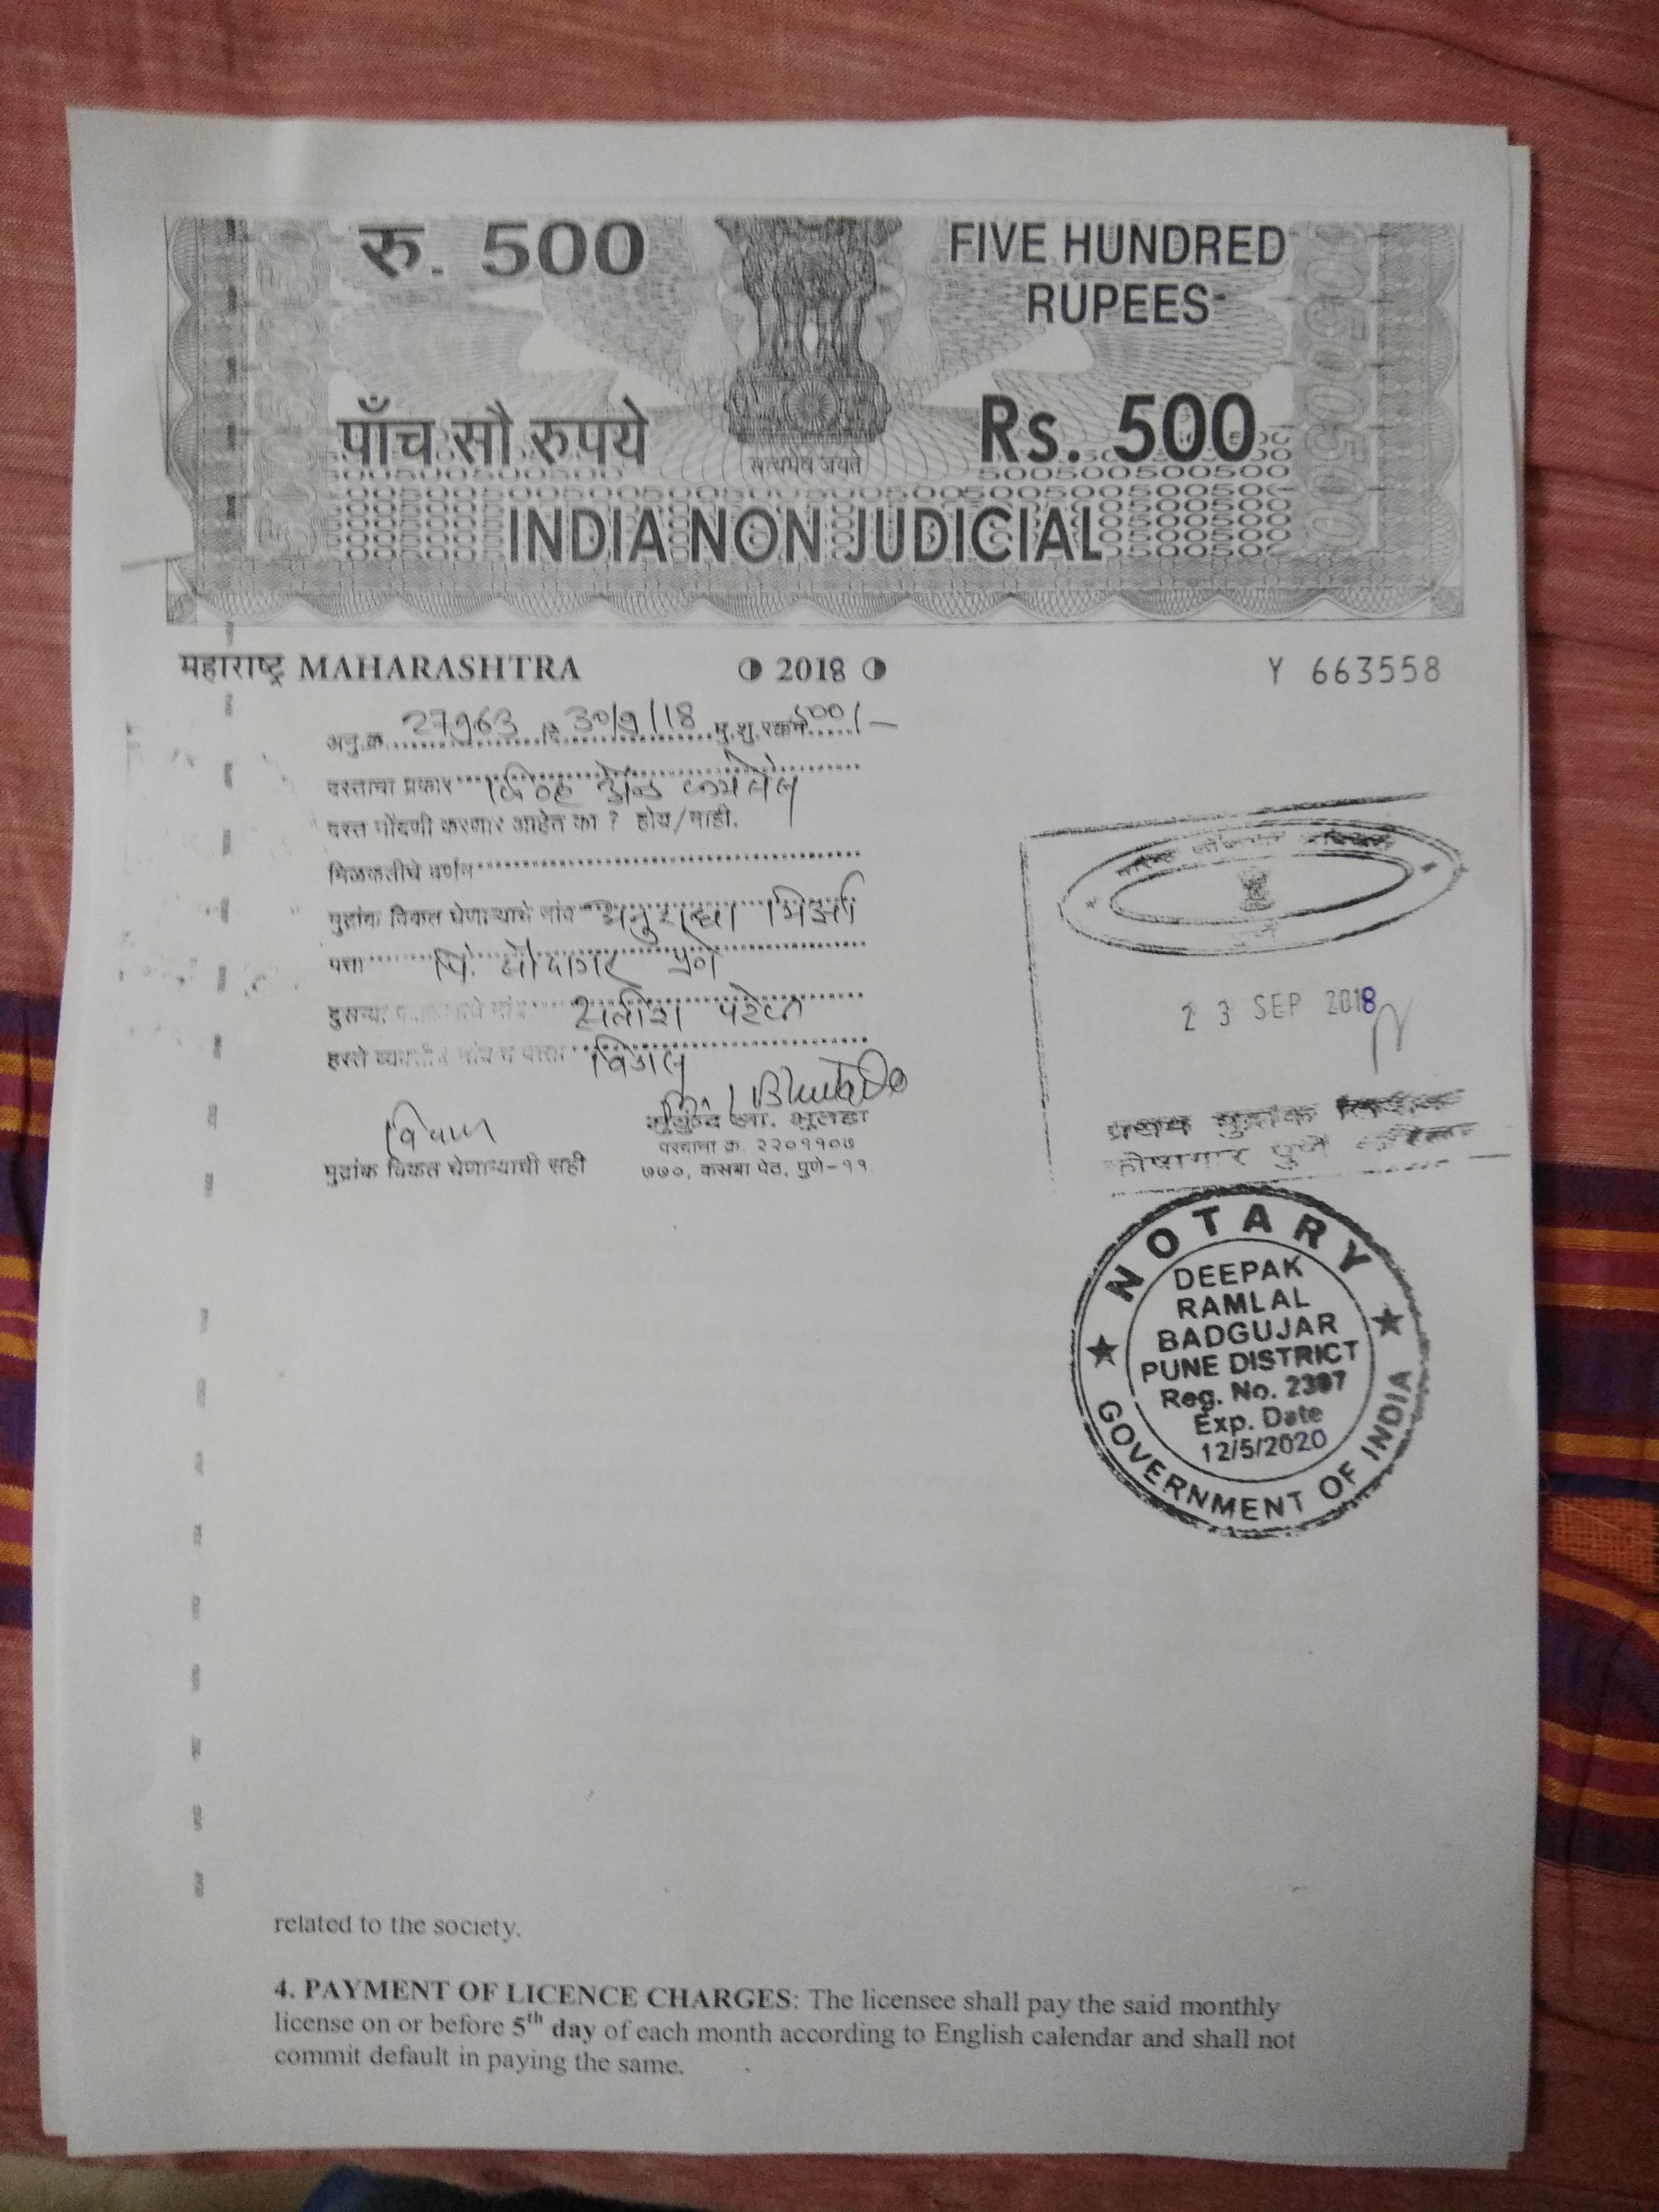 रु. 500
FIVE HUNDRED
RUPEES
पाँच सौ रुपये
सत्यमेव जयते
Rs. 500
INDIA NON JUDICIAL
महाराष्ट्र MAHARASHTRA
2018
Y 663558
अनु.क्र. 27963 दि 30/9/18 मु.शु.रक्कम 500/-
दस्ताचा प्रकार
दस्त नोंदणी करणार आहेत का ? होय/नाही.
मिळकतीचे वर्णन
मुद्रांक विकत घेणाऱ्याचे नांव अनुराधा मिर्झा
पत्ता पुणे
दुसऱ्या नांव सतीश
हस्ते व्यक्तीचे नांव व पत्ता
मुद्रांक विकत घेणाऱ्याची सही
मुकुंद ला. भुतडा
परवाना क्र. २२०११०७
७७०, कसबा पेठ, पुणे-११
23 SEP 2018
प्रथम मुद्रांक
कोषागार पुणे
NOTARY
DEEPAK
RAMLAL
BADGUJAR
PUNE DISTRICT
Reg. No. 2397
Exp. Date
12/5/2020
GOVERNMENT OF INDIA
related to the society.
4. PAYMENT OF LICENCE CHARGES: The licensee shall pay the said monthly
license on or before 5th day of each month according to English calendar and shall not
commit default in paying the same.